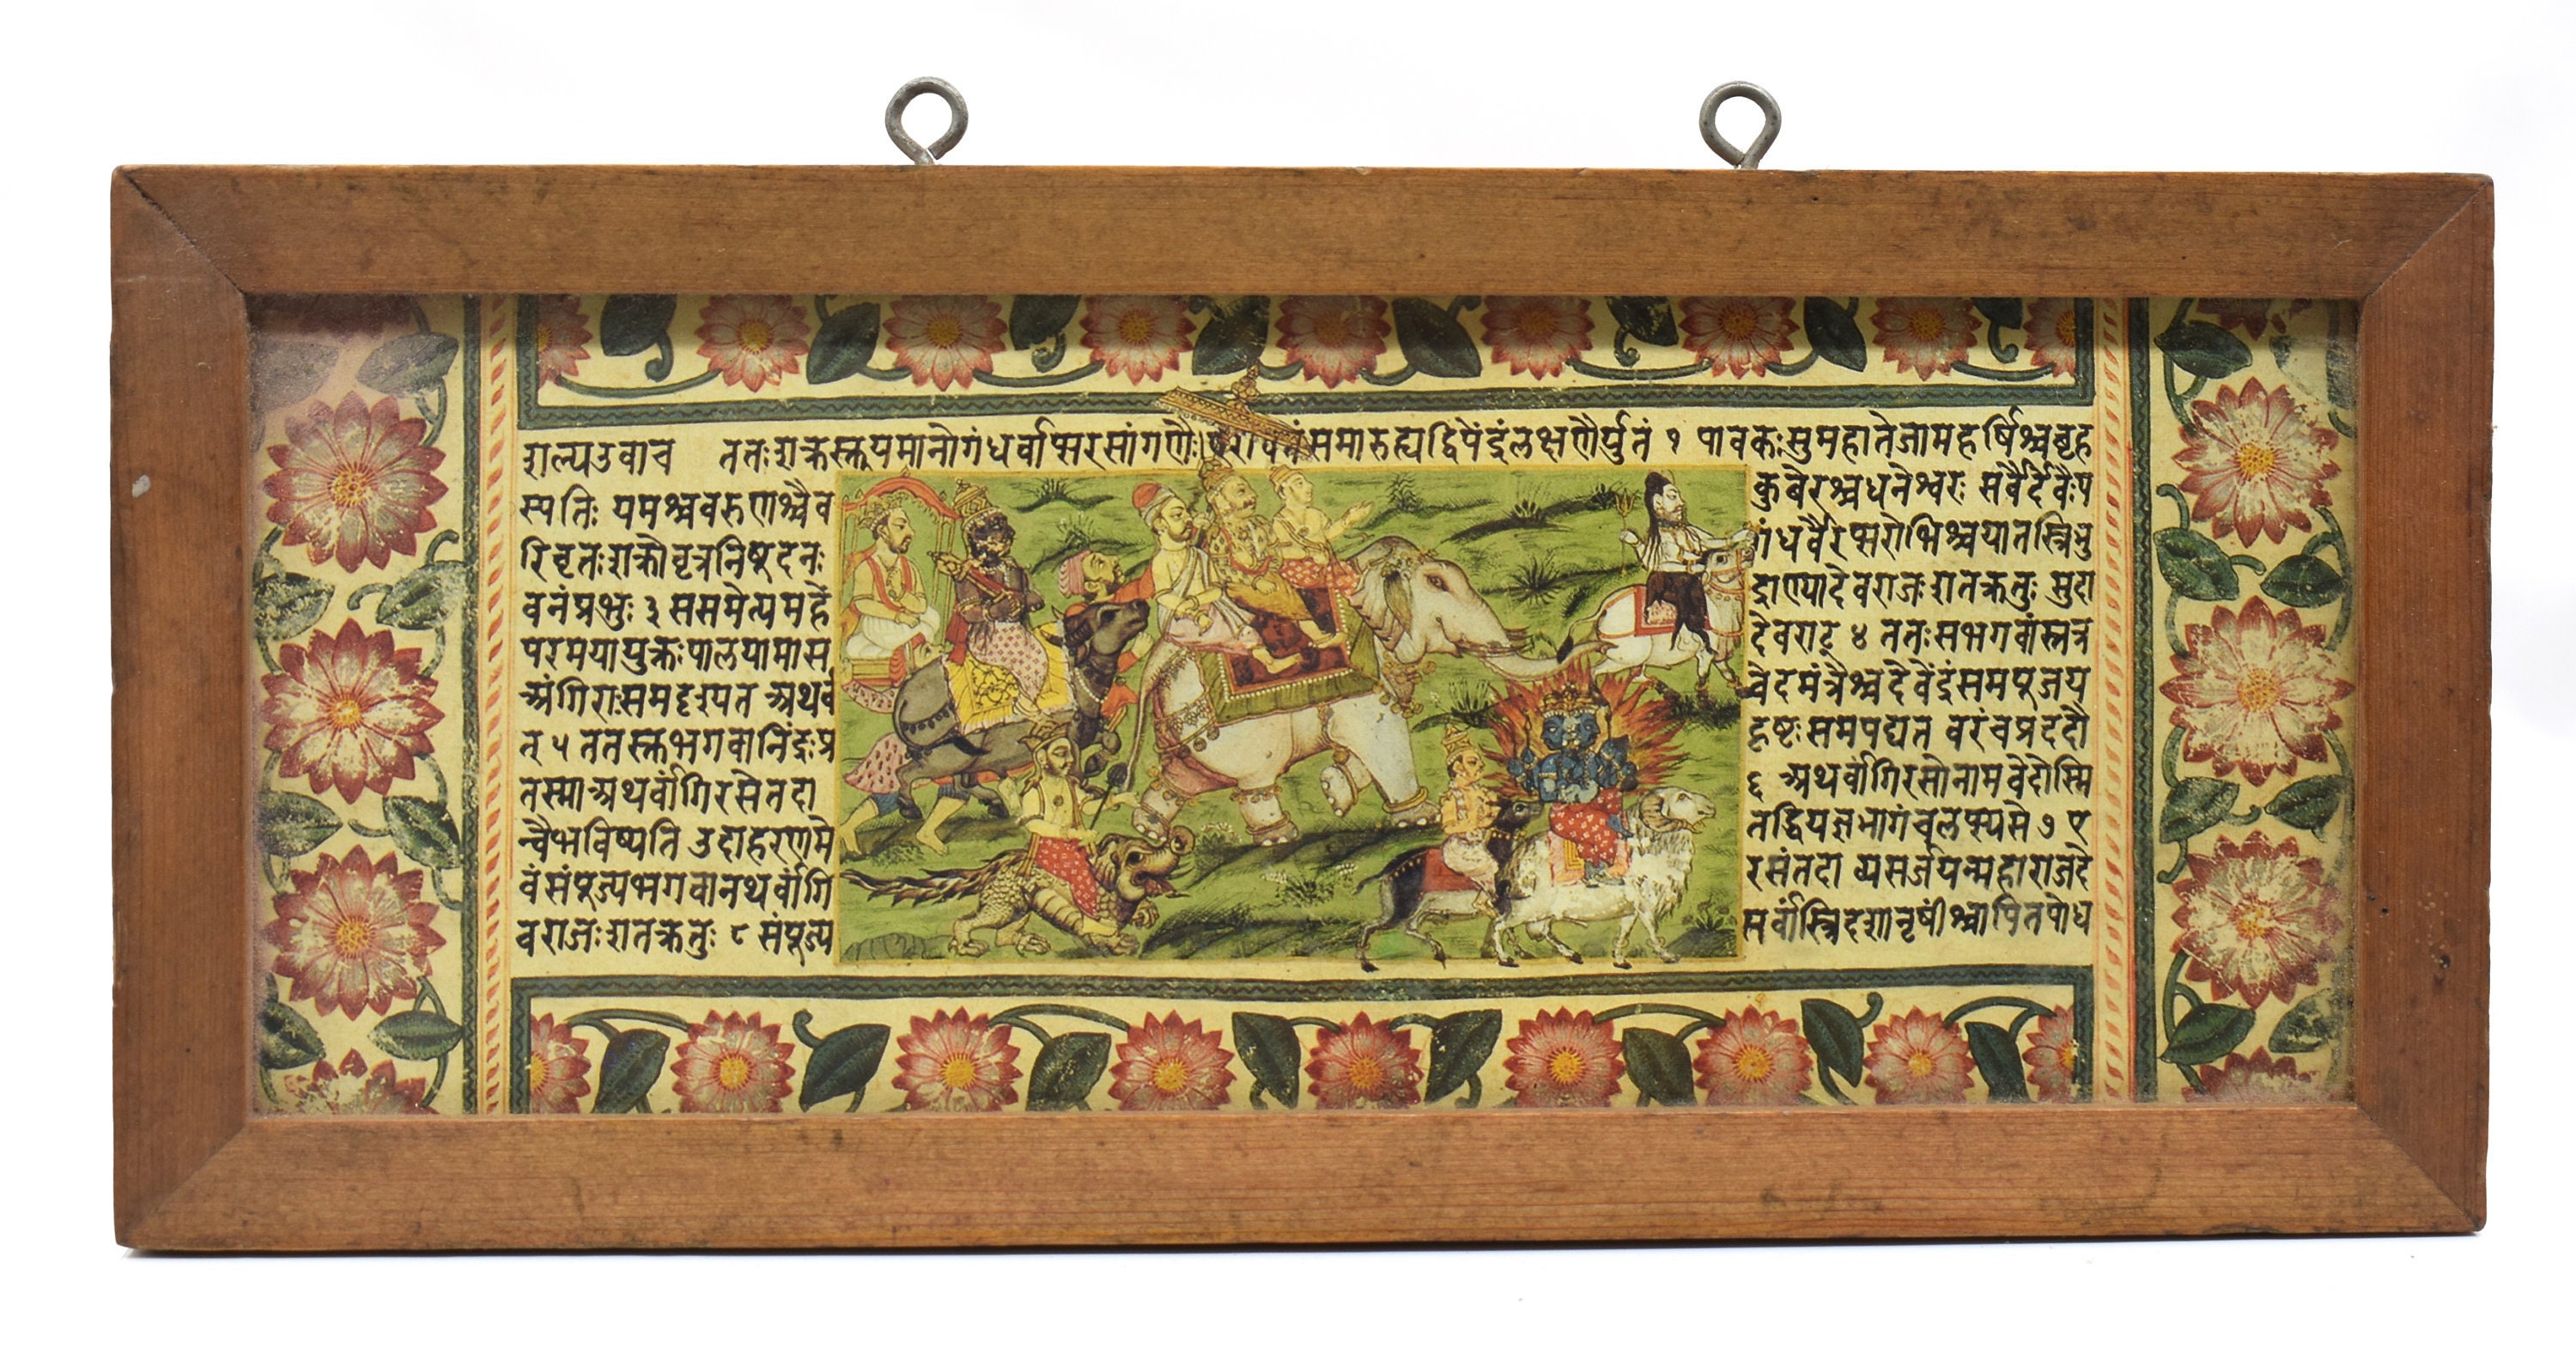 शल्यउवाच ततःशक्रस्तूयमानोगंधर्वाप्सरसांगणैः।ऐरावतंसमारुह्यद्विपेंद्रंलक्षणैर्युतं १ पावकःसुमहातेजामहर्षिश्चबृह
स्पतिः यमश्चवरुणश्चैव कुबेरश्चधनेश्वरः सर्वैर्देवैःप
रिवृतःशक्रोवृत्रनिषूदनः गंधर्वैरप्सरोभिश्चयातस्त्रिभु
वनंप्रभुः ३ ससमेत्यमहें द्राण्यादेवराजःशतक्रतुः मुदा
परमयायुक्तःपालयामास देवराट् ४ ततःसभगवांस्तत्र
अंगिराःसमदृश्यत अथर्व वेदमंत्रैश्चदेवेंद्रंसमपूजय
त ५ ततस्तुभगवानिंद्रःप्र हृष्टःसमपद्यत वरंचप्रददौ
तस्माअथर्वांगिरसेतदा ६ अथर्वांगिरसोनामवेदोस्मि
न्वैभविष्यति उदाहरणमे तद्धियज्ञभागंचलप्स्यसे ७ ए
वंसंपूज्यभगवानथर्वांगि रसंतदा व्यसर्जयन्महाराजदे
वराजःशतक्रतुः ८ संपूज्य सर्वांस्त्रिदशानृषींश्चापितपोध